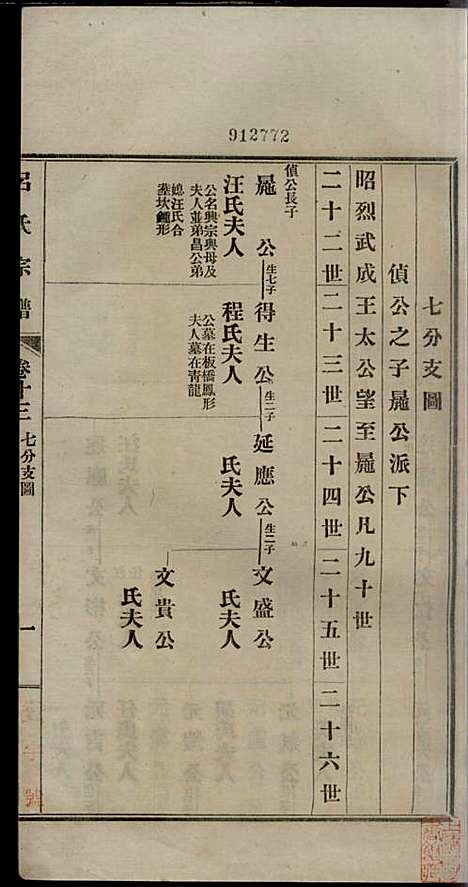 912772
七分支圖
偵公之子㒹公派下
昭烈武成王太公望至㒹公凡九十世
二十二世二十三世二十四世二十五世二十六世
偵公長子
公 生七子 得生公 生二子 延應公 生二子 文盛公
汪氏夫人 程氏夫人 氏夫人 氏夫人
公名興宗與母及
夫人並弟昌公弟
媳汪氏合
塟坎鍾形
公墓在板橋鳳形
夫人墓在青龍
文貴公
氏夫人
呂氏宗譜 卷十三 七分支圖 一